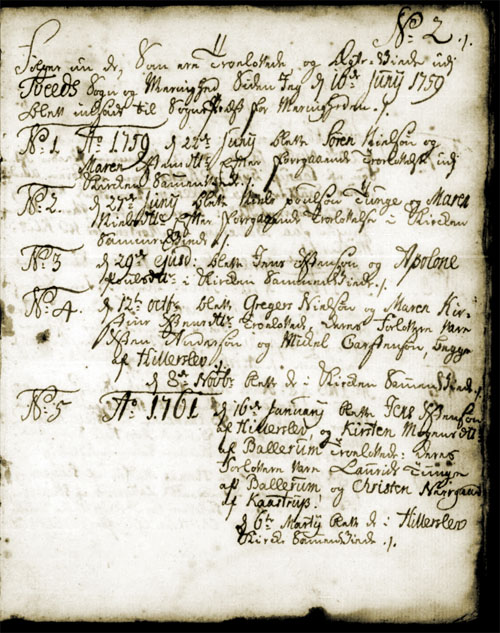 No. 2 ./.
Følger nu de, Som ere Troelovede og Ægte-Viede udj
Tveeds Sogn og Menighed Siden Jeg d 16de Junij 1759
blev indsadt til Sogne Præst for Menigheden ./.
No. 1. Ao 1759 d 22de Junij blev Sören Nielsön og
Maren Efter Forgaaende Troelovelse udj
Kircken Sammenviede ./.
No. 2. d 27de Junij blev Niels Poulsön Tunge og Maren
Nielsdttr Efter Forgaaende Troelovelse i Kircken
Sammen Viede ./.
No. 3 d 29de blev Jens Ibsensön og Apolone
Poulsdttr i Kircken Sammen Viede ./.
No. 4. d 12te octbr blev Gregers Nielsön og Maren Kir-
Troelovede, Deres Forlovere Vare
Andersön og Michel Carstensön, begge
af Hillerslev
d 8de Novbr bleve de i Kircken Sammen Viede ./.
No. 5 Ao 1761 d 16de Januarij bleve Jens Ibsensön
af Hillerslev, og Kirsten Mogensdttr
af Ballerum Troelovede: Deres
Forlovere Vare Laurids Tunge
af Ballerum og Christen Nørgaard
af Kaastrup!
d 6te Martij bleve de i Hillerslev
Kircke Sammen Viede ./.